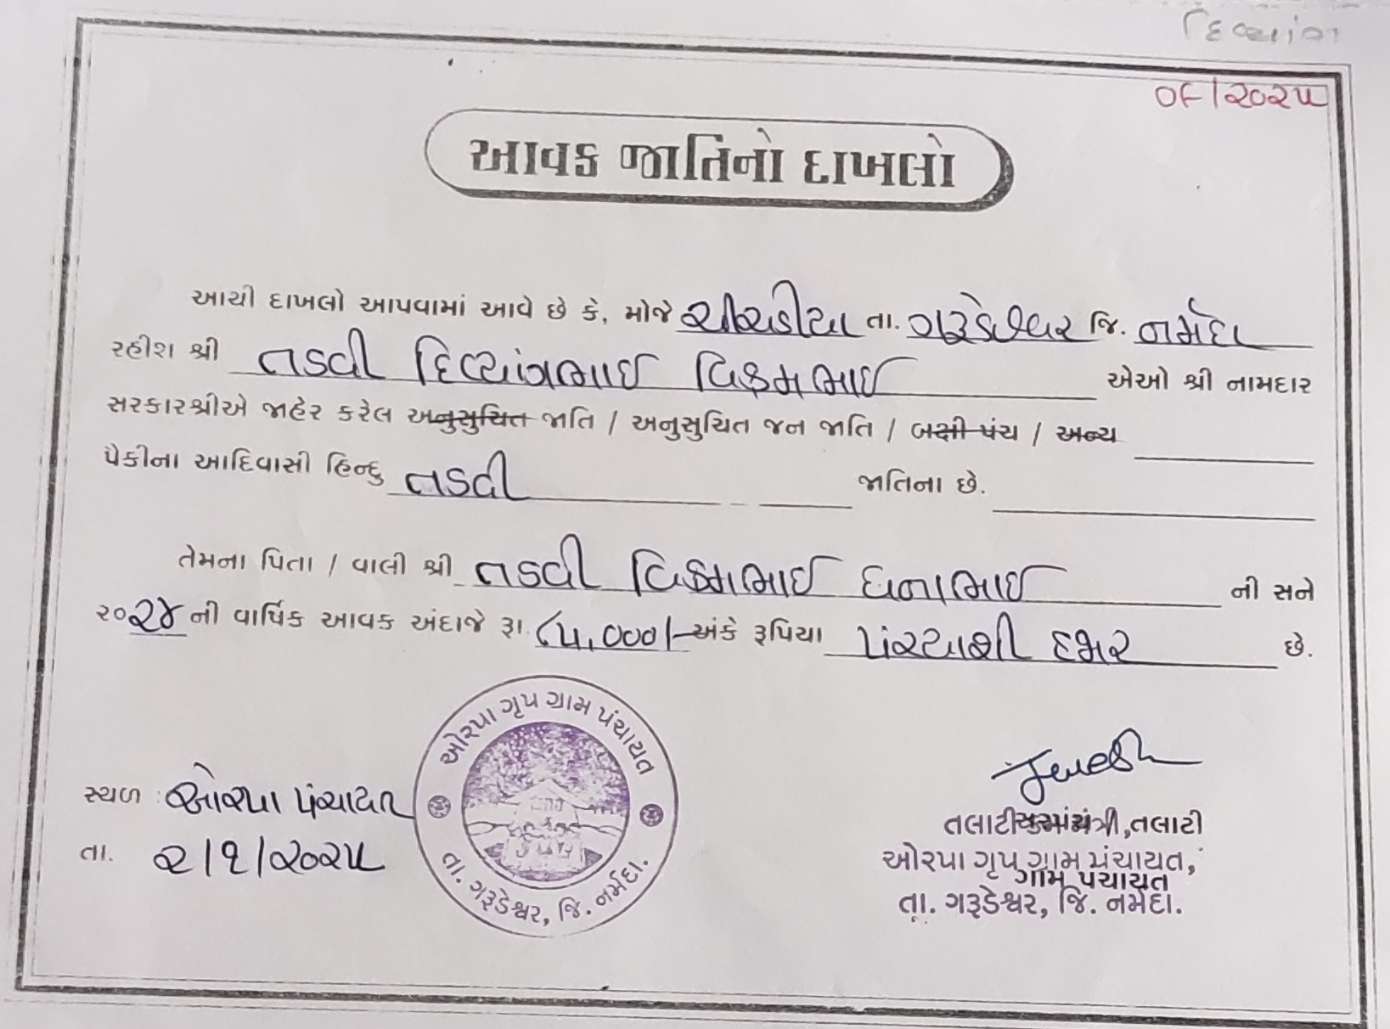 દિવ્યાંગ
૦૯/૨૦૨૫
આવક જાતિનો દાખલો
આથી દાખલો આપવામાં આવે છે કે, મોજે તા. ગરૂડેશ્વર જિ. નર્મદા
રહીશ શ્રી તડવી દિવ્યાંગભાઈ વિક્રમભાઈ એઓ શ્રી નામદાર
સરકારશ્રીએ જાહેર કરેલ અનુસુચિત જાતિ / અનુસુચિત જન જાતિ / બક્ષી પંચ / અન્ય
પૈકીના આદિવાસી હિન્દુ તડવી જાતિના છે.
તેમના પિતા / વાલી શ્રી તડવી વિક્રમભાઈ ધનાભાઈ ની સને
૨૦૨૪ ની વાર્ષિક આવક અંદાજે રૂા. ૮૫,૦૦૦/- અંકે રૂપિયા પંચ્યાશી હજાર છે.
ઓરપા ગૃપ ગ્રામ પંચાયત
તા. ગરૂડેશ્વર, જિ. નર્મદા.
સ્થળ : ઓરપા પંચાયત
તા. ૨/૧/૨૦૨૫
તલાટી કમ મંત્રી, તલાટી
ઓરપા ગૃપ ગ્રામ પંચાયત,
ગ્રામ પંચાયત
તા. ગરૂડેશ્વર, જિ. નર્મદા.